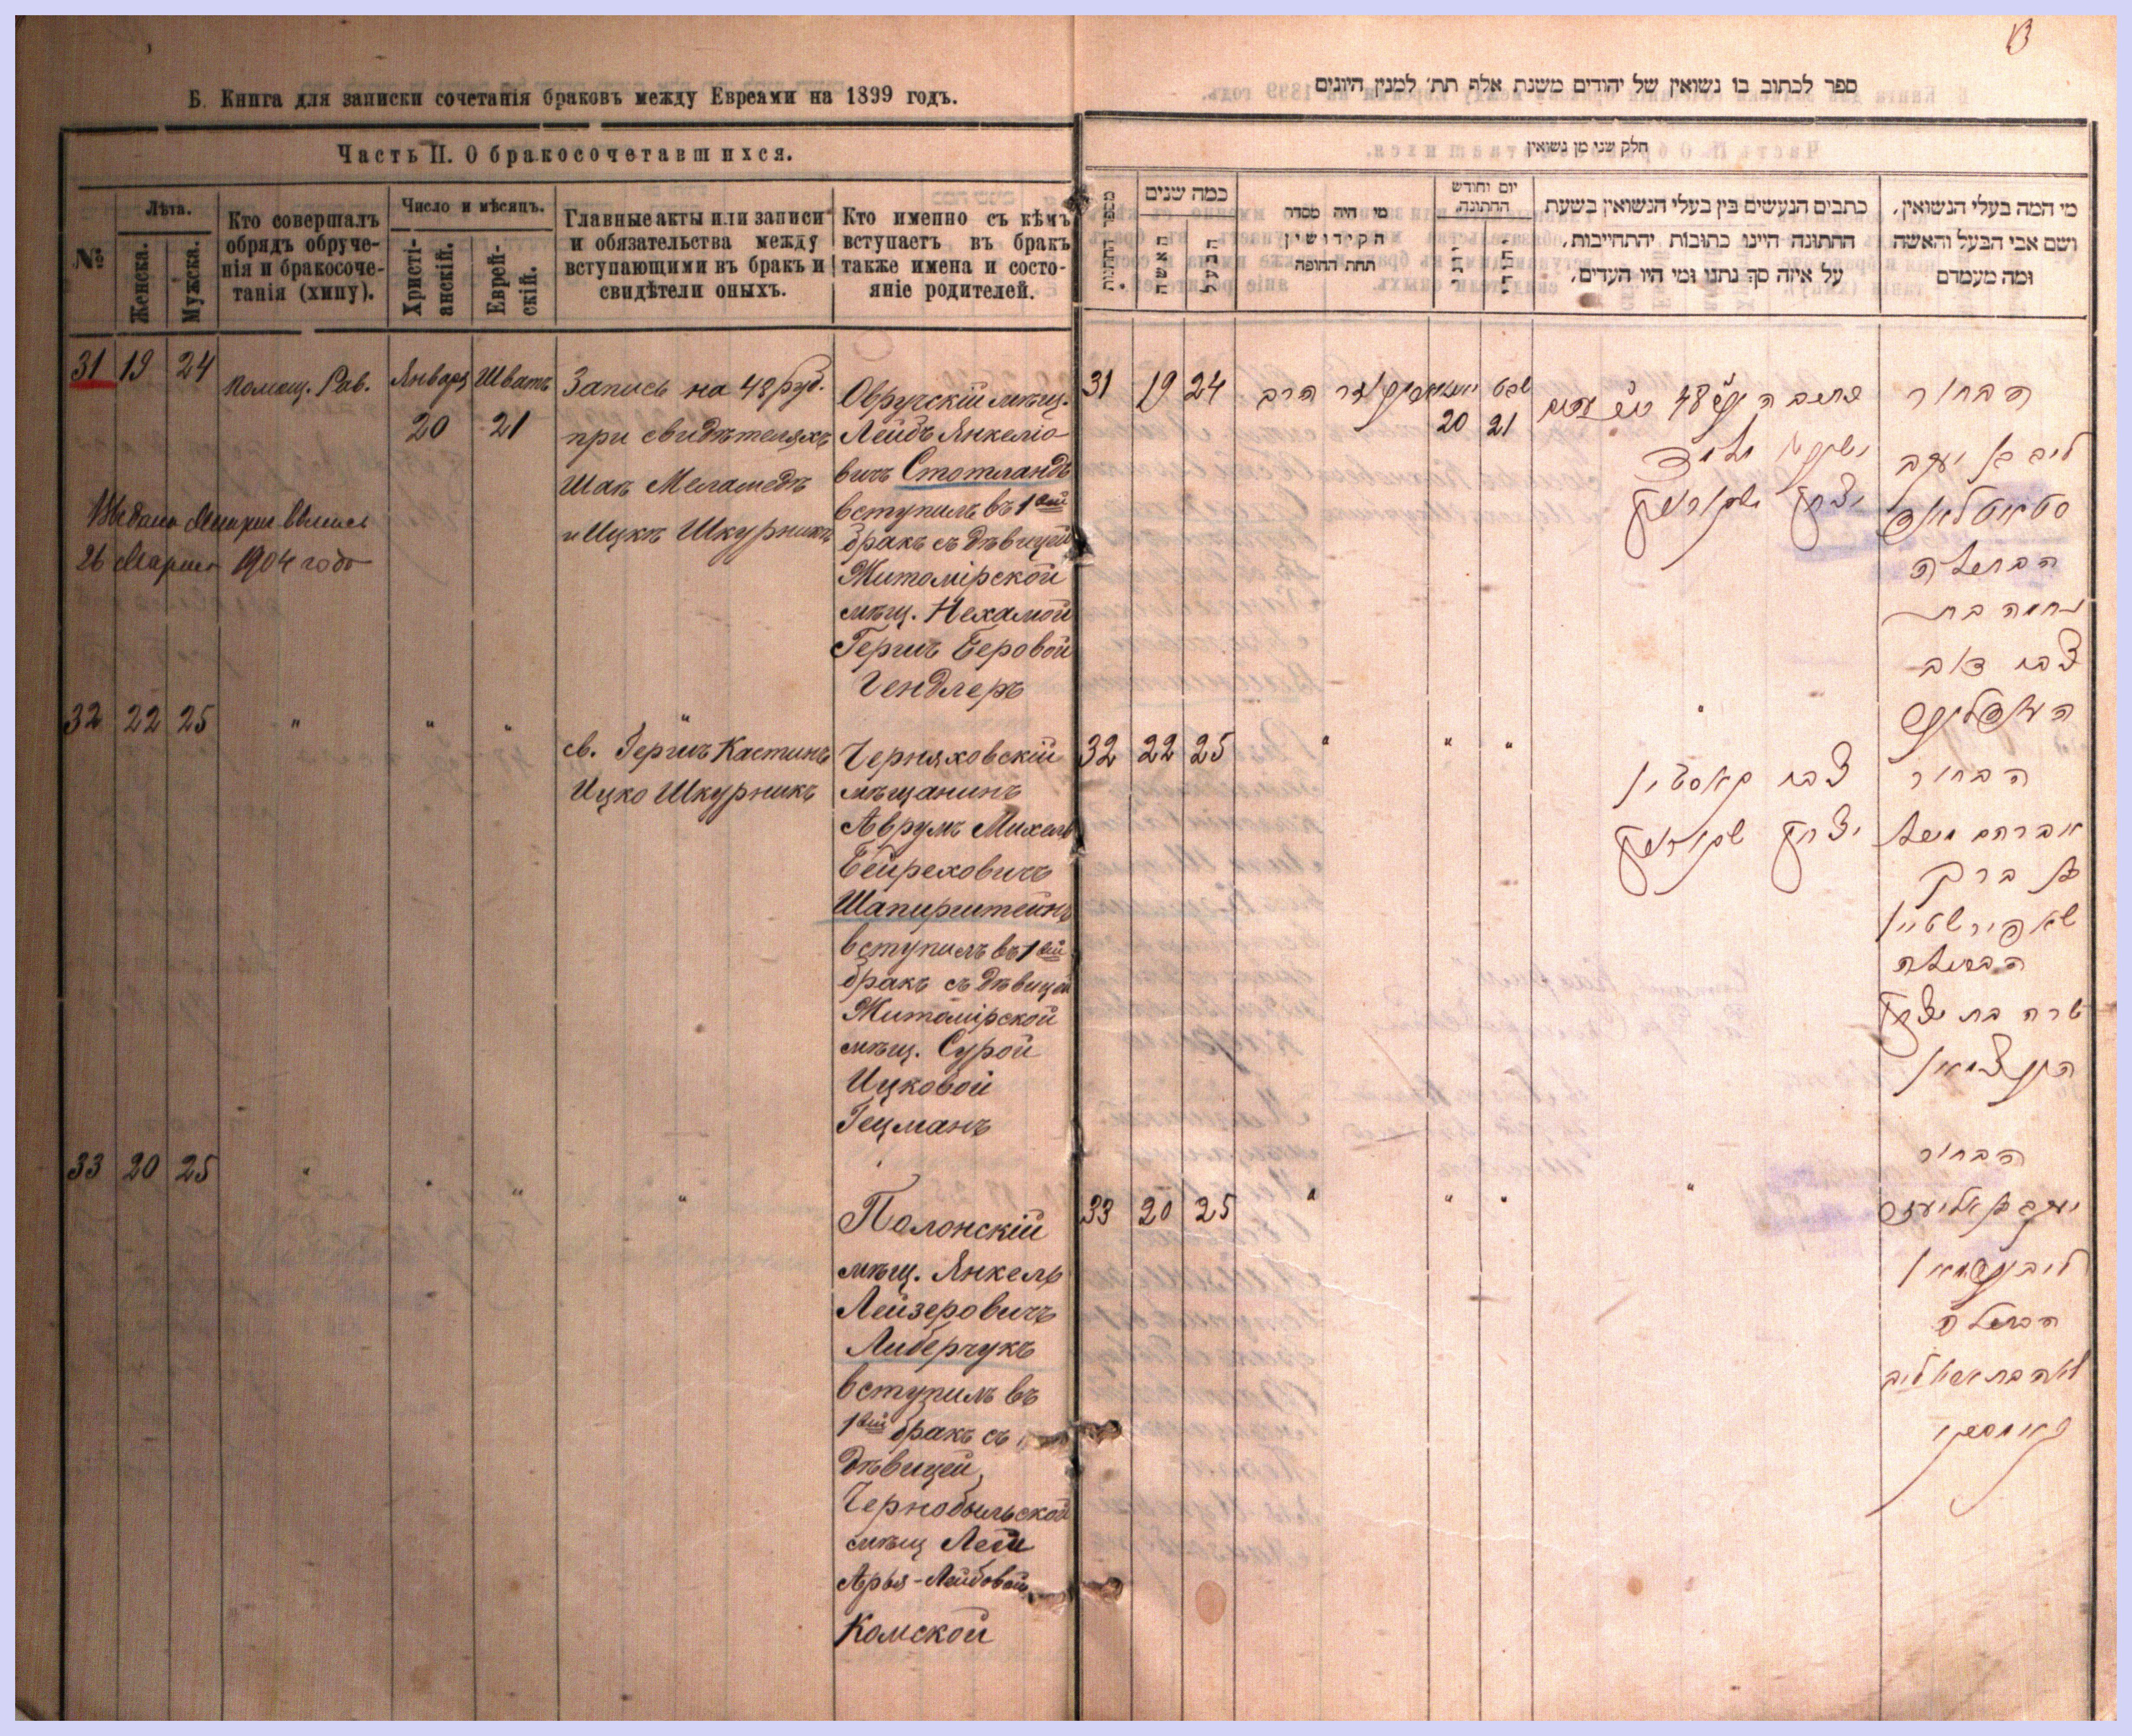 Б. Книга для записки сочетанія браковъ между Евреями на 1899 годъ.
Часть II. О бракосочетавшихся.
№
Лѣта.
Женска.
Мужска.
Кто совершалъ
обрядъ обруче-
нія и бракосоче-
танія (хипу).
Число и мѣсяцъ.
Христі-
анскій.
Еврей-
скій.
Главные акты или записи
и обязательства между
вступающими въ бракъ и
свидѣтели оныхъ.
Кто именно съ кѣмъ
вступаетъ въ бракъ
также имена и состо-
яніе родителей.
31 19 24
Помощ. Рав.
Январь
20
Шватъ
21
Запись на 48 руб.
при свидѣтеляхъ
Шая Меламедъ
и Ицкъ Шкурникъ
Овручскій мѣщ.
Лейбъ Янкеліо-
вичъ Стотландъ
вступилъ въ 1вый
бракъ съ дѣвицей
Житомірской
мѣщ. Нехамой
Гершъ Беровой
Гендлеръ
26 Марта 1904 года
32 22 25 " " " "
св. Гершъ Кастинъ
Ицко Шкурникъ
Черняховскій
мѣщанинъ
Аврумъ Михель
Бейреховичъ
Шапирштейнъ
вступилъ въ 1вый
бракъ съ дѣвицей
Житомірской
мѣщ. Сурой
Ицковой
Гецманъ
33 20 25 " " " "
Полонскій
мѣщ. Янкель
Лейзеровичъ
Либерчукъ
вступилъ въ
1вый бракъ съ
дѣвицей
Чернобыльской
мѣщ Леи
Арья-Лейбовой
Комской
ספר לכתוב בו נשואין של יהודים משנת אלף תת׳ למנין היונים
חלק שני מן נשואין
מספר החתונות
כמה שנים
האשה
הבעל
מי היה מסדר
הקידושין
תחת החופה
יום וחודש
החתונה
יהודי
כתבים הנעשים בין בעלי הנשואין בשעת
החתונה היינו כתובות והתחייבות,
על איזה סך נתנו ומי היו העדים.
מי המה בעלי הנשואין,
ושם אבי הבעל והאשה
ומה מעמדם
31 19 24
הרב
20
שבט
21
48
יצחק שקורניק
הבחור
ליב בן יעקב
סטאטלאנד
הבתולה
נחמה בת
צבי דוב
32 22 25 " " " "
צבי קאסטין
יצחק שקורניק
הבחור
אברהם
שאפירשטיין
הבתולה
שרה בת יצחק
33 20 25 " " " "
הבחור
יעקב בן אליעזר
הבתולה